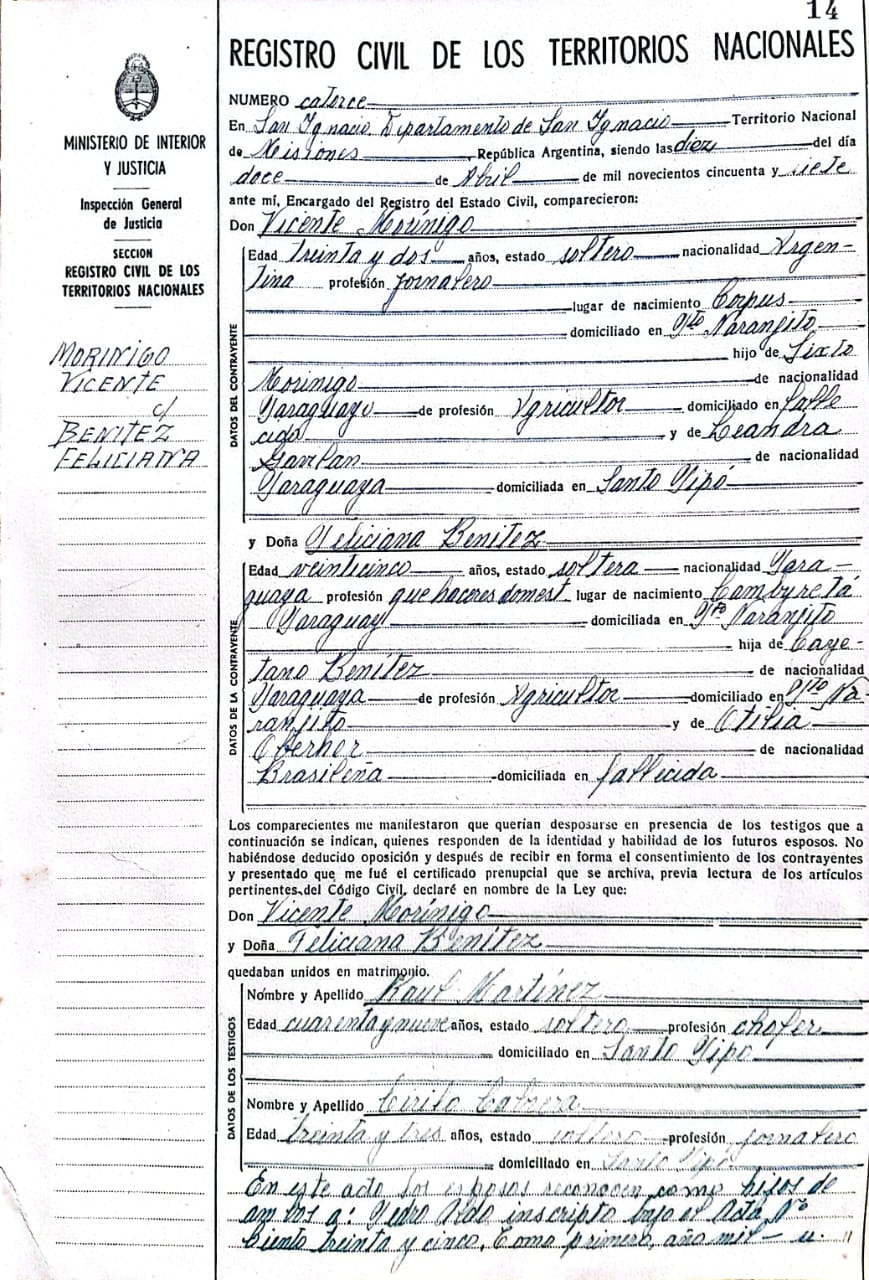 14
REGISTRO CIVIL DE LOS TERRITORIOS NACIONALES
MINISTERIO DE INTERIOR
Y JUSTICIA
Inspección General
de Justicia
SECCION
REGISTRO CIVIL DE LOS
TERRITORIOS NACIONALES
MORINIGO
VICENTE
c/
BENITEZ
FELICIANA
NUMERO catorce
En San Ignacio Departamento de San Ignacio Territorio Nacional
de Misiones, República Argentina, siendo las diez del día
doce de Abril de mil novecientos cincuenta y siete
ante mí, Encargado del Registro del Estado Civil, comparecieron:
Don Vicente Morínigo
DATOS DEL CONTRAYENTE
Edad treinta y dos años, estado soltero nacionalidad Argen-
tina profesión jornalero
lugar de nacimiento Corpus
domiciliado en Pto Naranjito
hijo de Sixto
Morinigo de nacionalidad
Paraguayo de profesión Agricultor domiciliado en falle
cido y de Leandra
de nacionalidad
Paraguaya domiciliada en Santo Pipó
y Doña Feliciana Benitez
DATOS DE LA CONTRAYENTE
Edad veinticinco años, estado soltera nacionalidad Para-
guaya profesión quehaceres domest. lugar de nacimiento Cambyretá
Paraguay domiciliada en Pto Naranjito
hija de Caye-
tano Benítez de nacionalidad
Paraguaya de profesión Agricultor domiciliado en Pto Na-
ranjito y de Otilia
de nacionalidad
Brasileña domiciliada en fallecida
Los comparecientes me manifestaron que querían desposarse en presencia de los testigos que a
continuación se indican, quienes responden de la identidad y habilidad de los futuros esposos. No
habiéndose deducido oposición y después de recibir en forma el consentimiento de los contrayentes
y presentado que me fué el certificado prenupcial que se archiva, previa lectura de los artículos
pertinentes del Código Civil, declaré en nombre de la Ley que:
Don Vicente Morínigo
y Doña Feliciana Benítez
quedaban unidos en matrimonio.
DATOS DE LOS TESTIGOS
Nombre y Apellido Raul Martínez
Edad cuarenta y nueve años, estado soltero profesión chofer
domiciliado en Santo Pipó
Nombre y Apellido Cirilo Cabrera
Edad treinta y tres años, estado soltero profesión jornalero
domiciliado en Santo Pipó
En este acto los esposos reconocen como hijos de
ambos a: Pedro Aldo inscripto bajo el Acta Nº
Ciento treinta y cinco, Tomo primero, año mil-